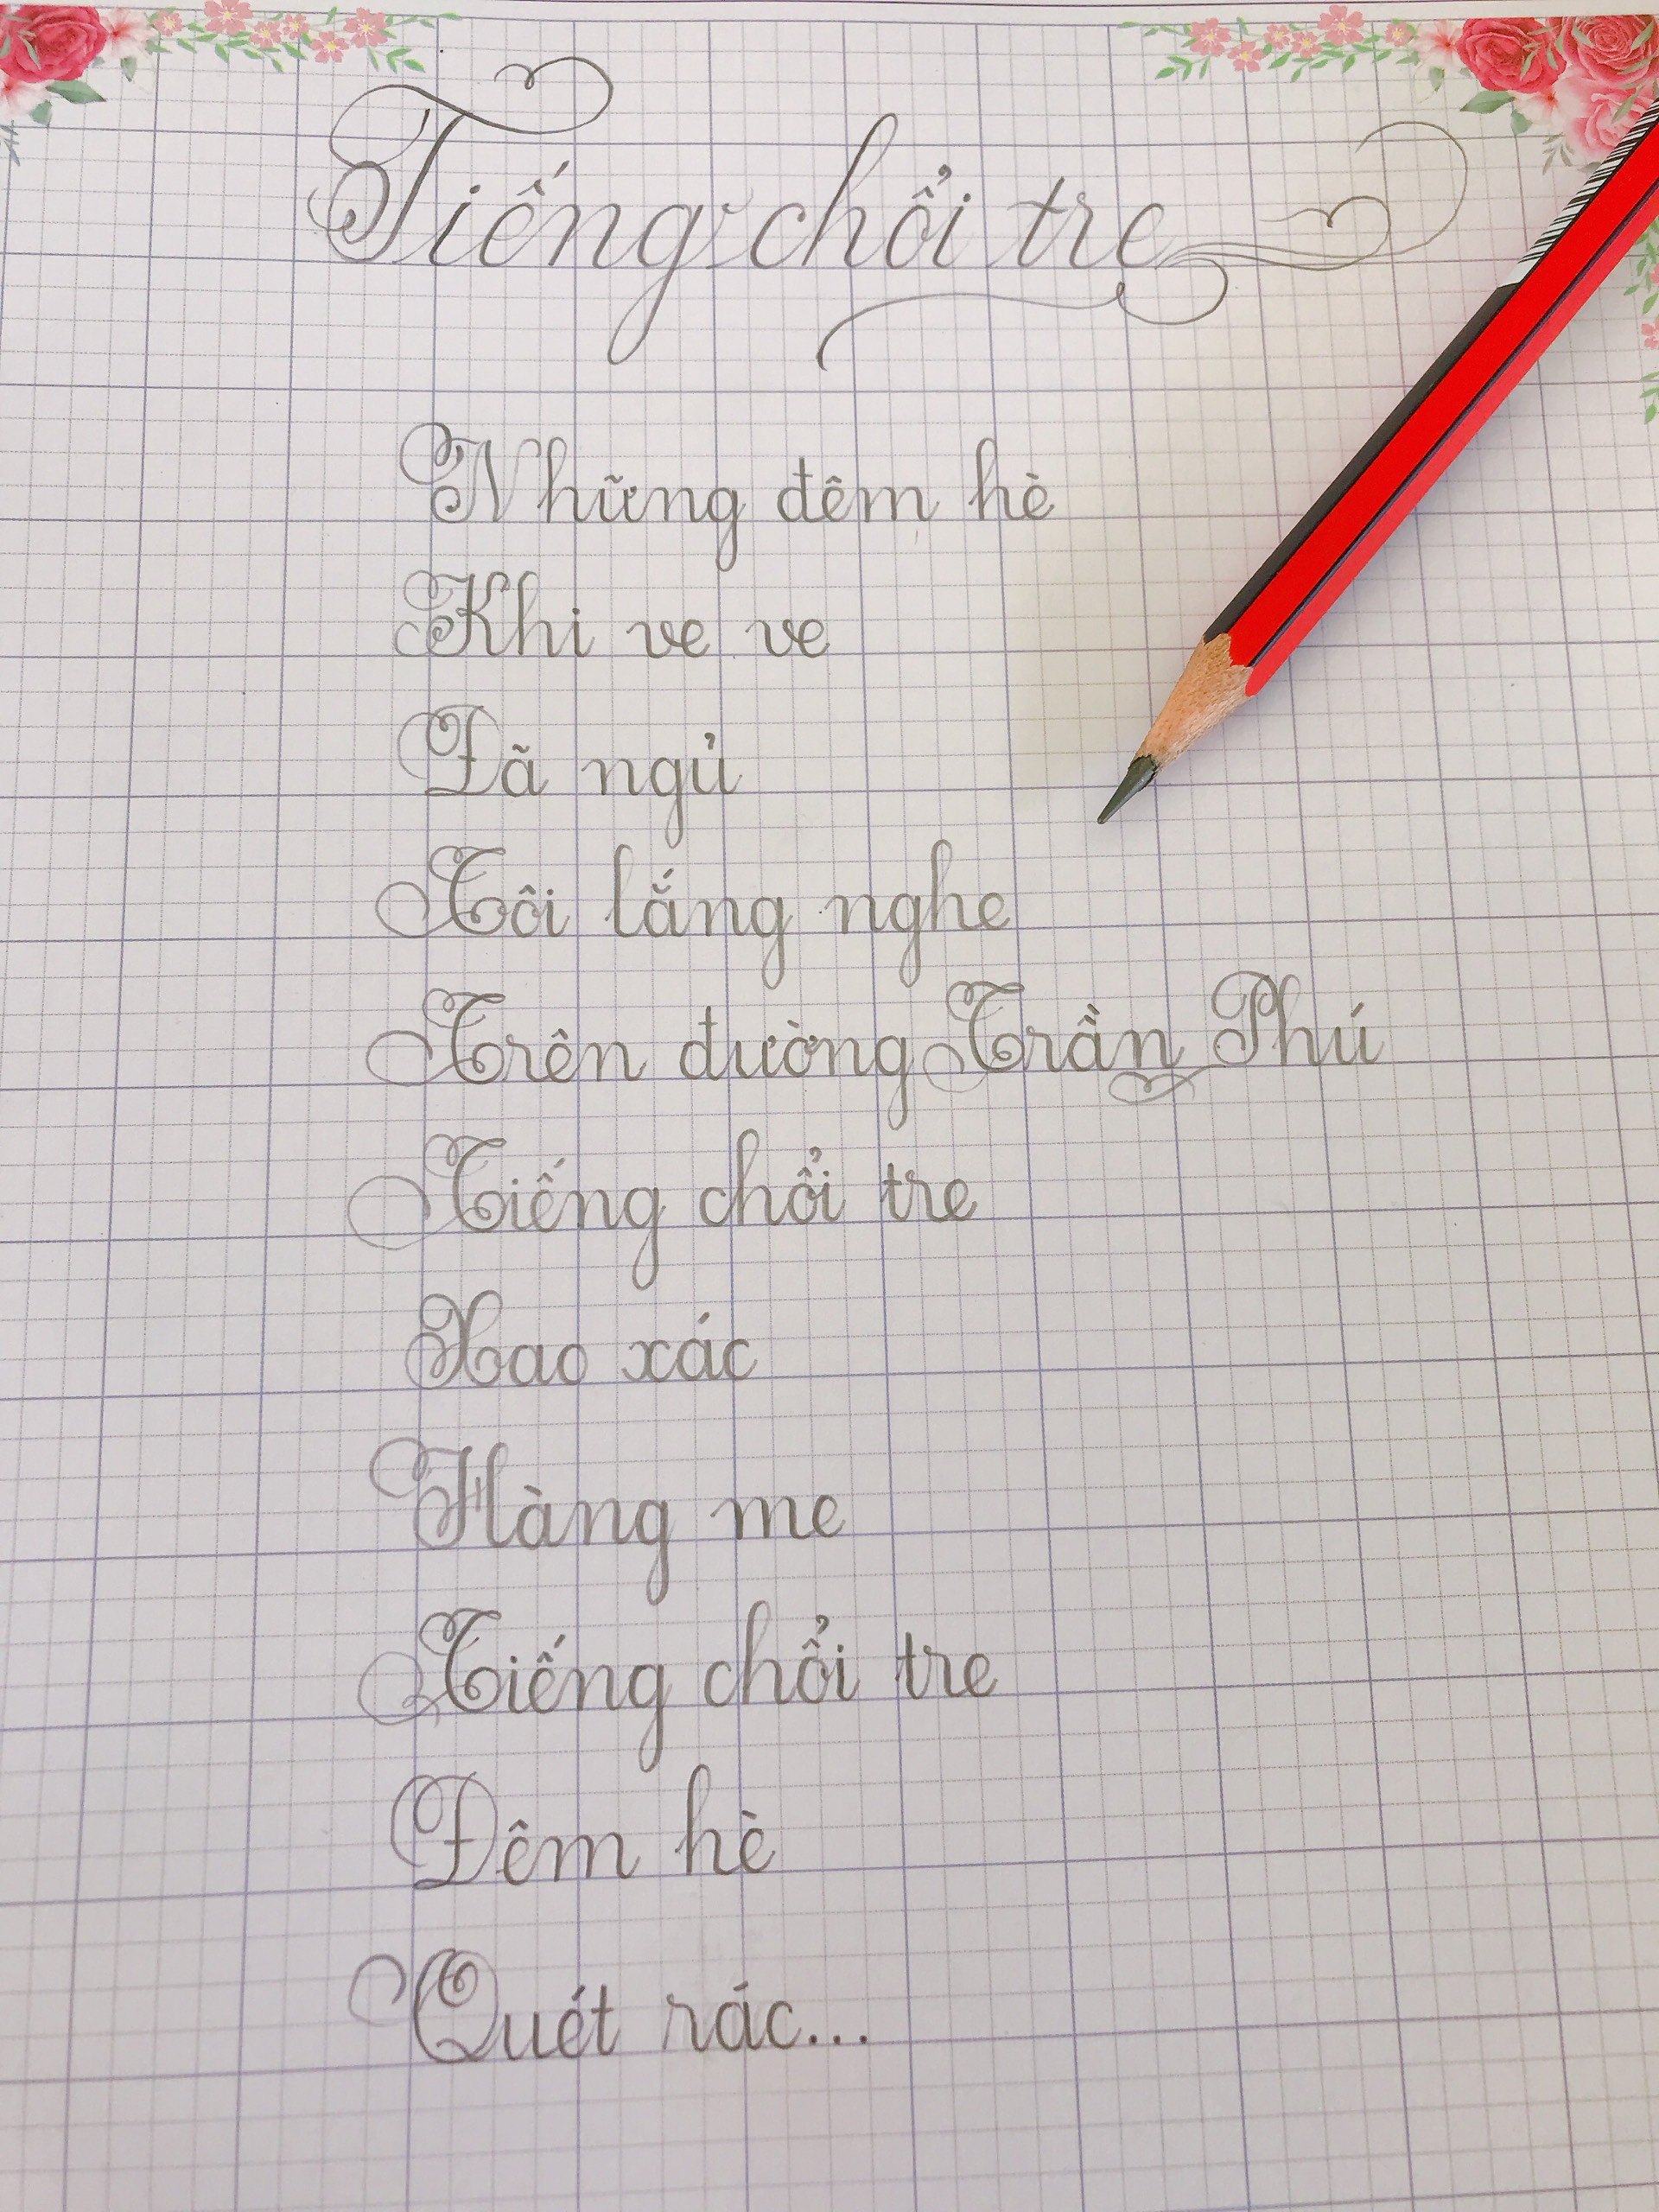 Tiếng chổi tre
Những đêm hè
Khi ve ve
Đã ngủ
Tôi lắng nghe
Trên đường Trần Phú
Tiếng chổi tre
Xao xác
Hàng me
Tiếng chổi tre
Đêm hè
Quét rác...